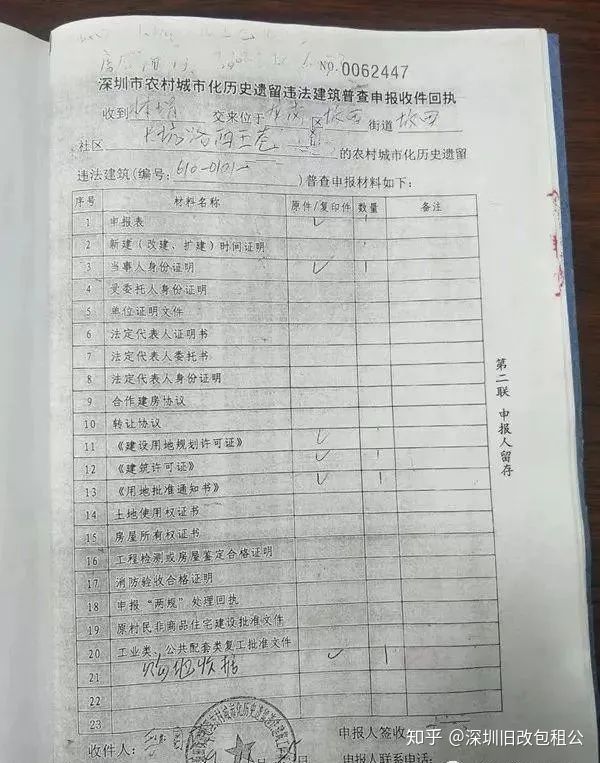 NO.0062447
深圳市农村城市化历史遗留违法建筑普查申报收件回执
收到 交来位于 区坂田街道坂田
社区 的农村城市化历史遗留
违法建筑(编号: )普查申报材料如下:
序号 材料名称 原件/复印件 数量 备注
1 申报表 ✓ 1
2 新建(改建、扩建)时间证明
3 当事人身份证明 ✓ 1
4 受委托人身份证明
5 单位证明文件
6 法定代表人证明书
7 法定代表人委托书
8 法定代表人身份证明
9 合作建房协议
10 转让协议
11 《建设用地规划许可证》 ✓ 1
12 《建筑许可证》 ✓ 1
13 《用地批准通知书》 ✓ 1
14 土地使用权证书
15 房屋所有权证书
16 工程检测或房屋鉴定合格证明
17 消防验收合格证明
18 申报“两规”处理回执
19 原村民非商品住宅建设批准文件
20 工业类、公共配套类复工批准文件 ✓ 1
21 收据
22
23
收件人: 申报人签收
申报人联系电话:
第二联 申报人留存
知乎 @深圳旧改包租公